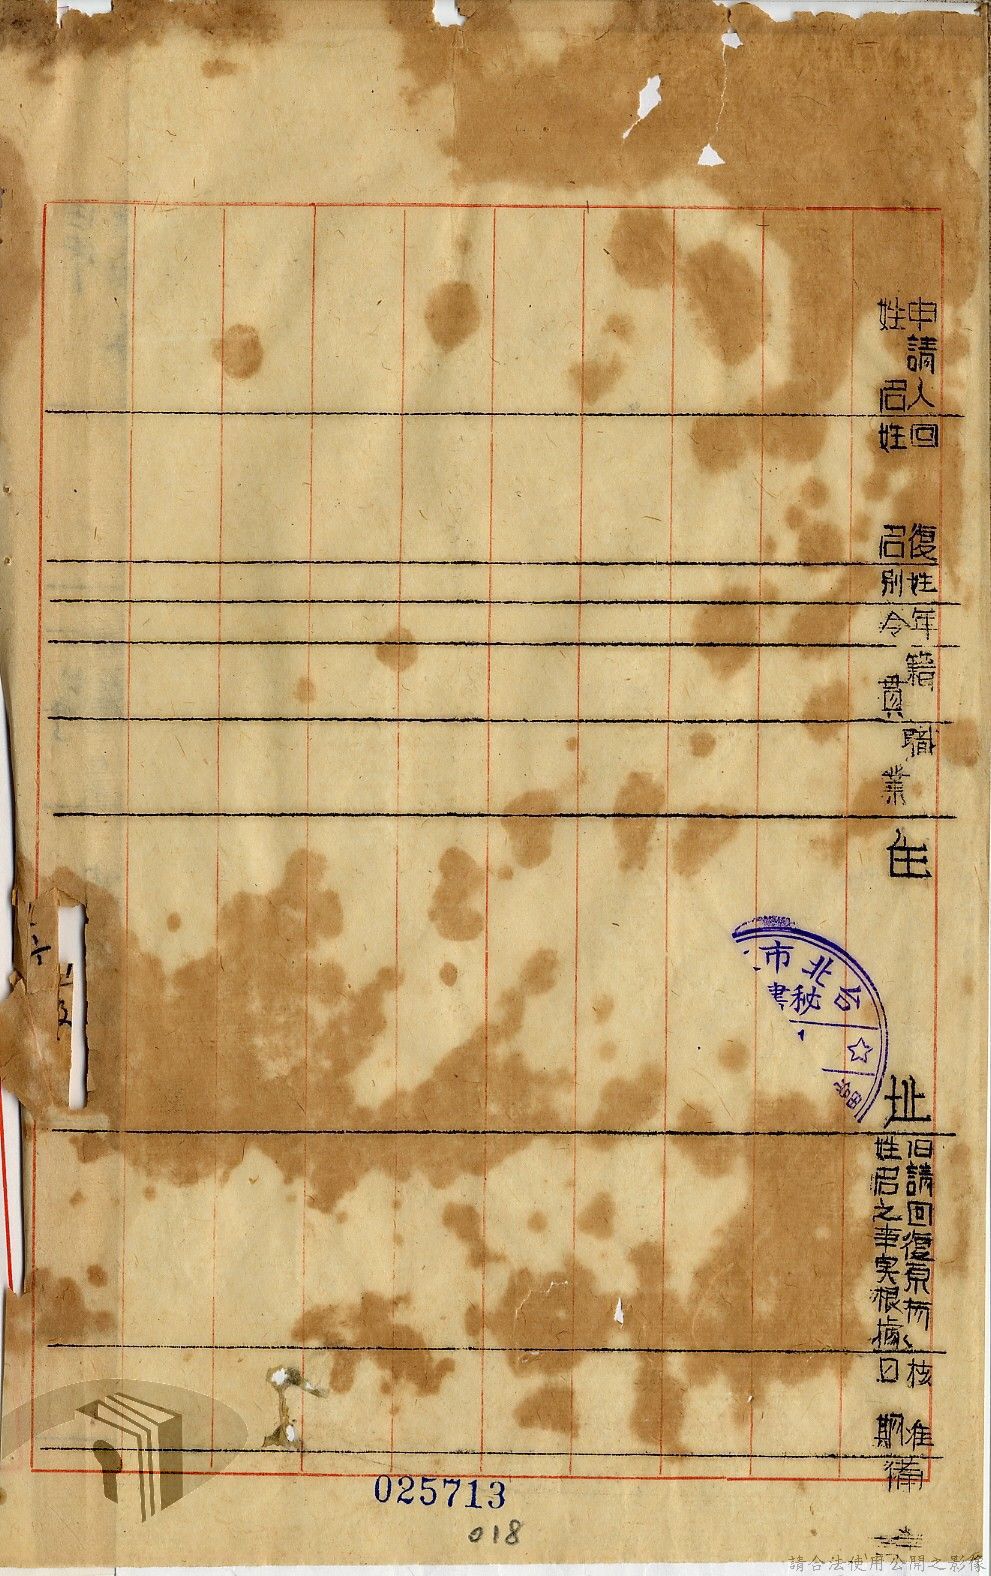 申請人姓名
回復姓名
姓別
年令
籍貫
職業
住址
旧請回復原有姓名之事実根據
核准日期
備
台北市
秘書
025713
018
請合法使用公開之影像